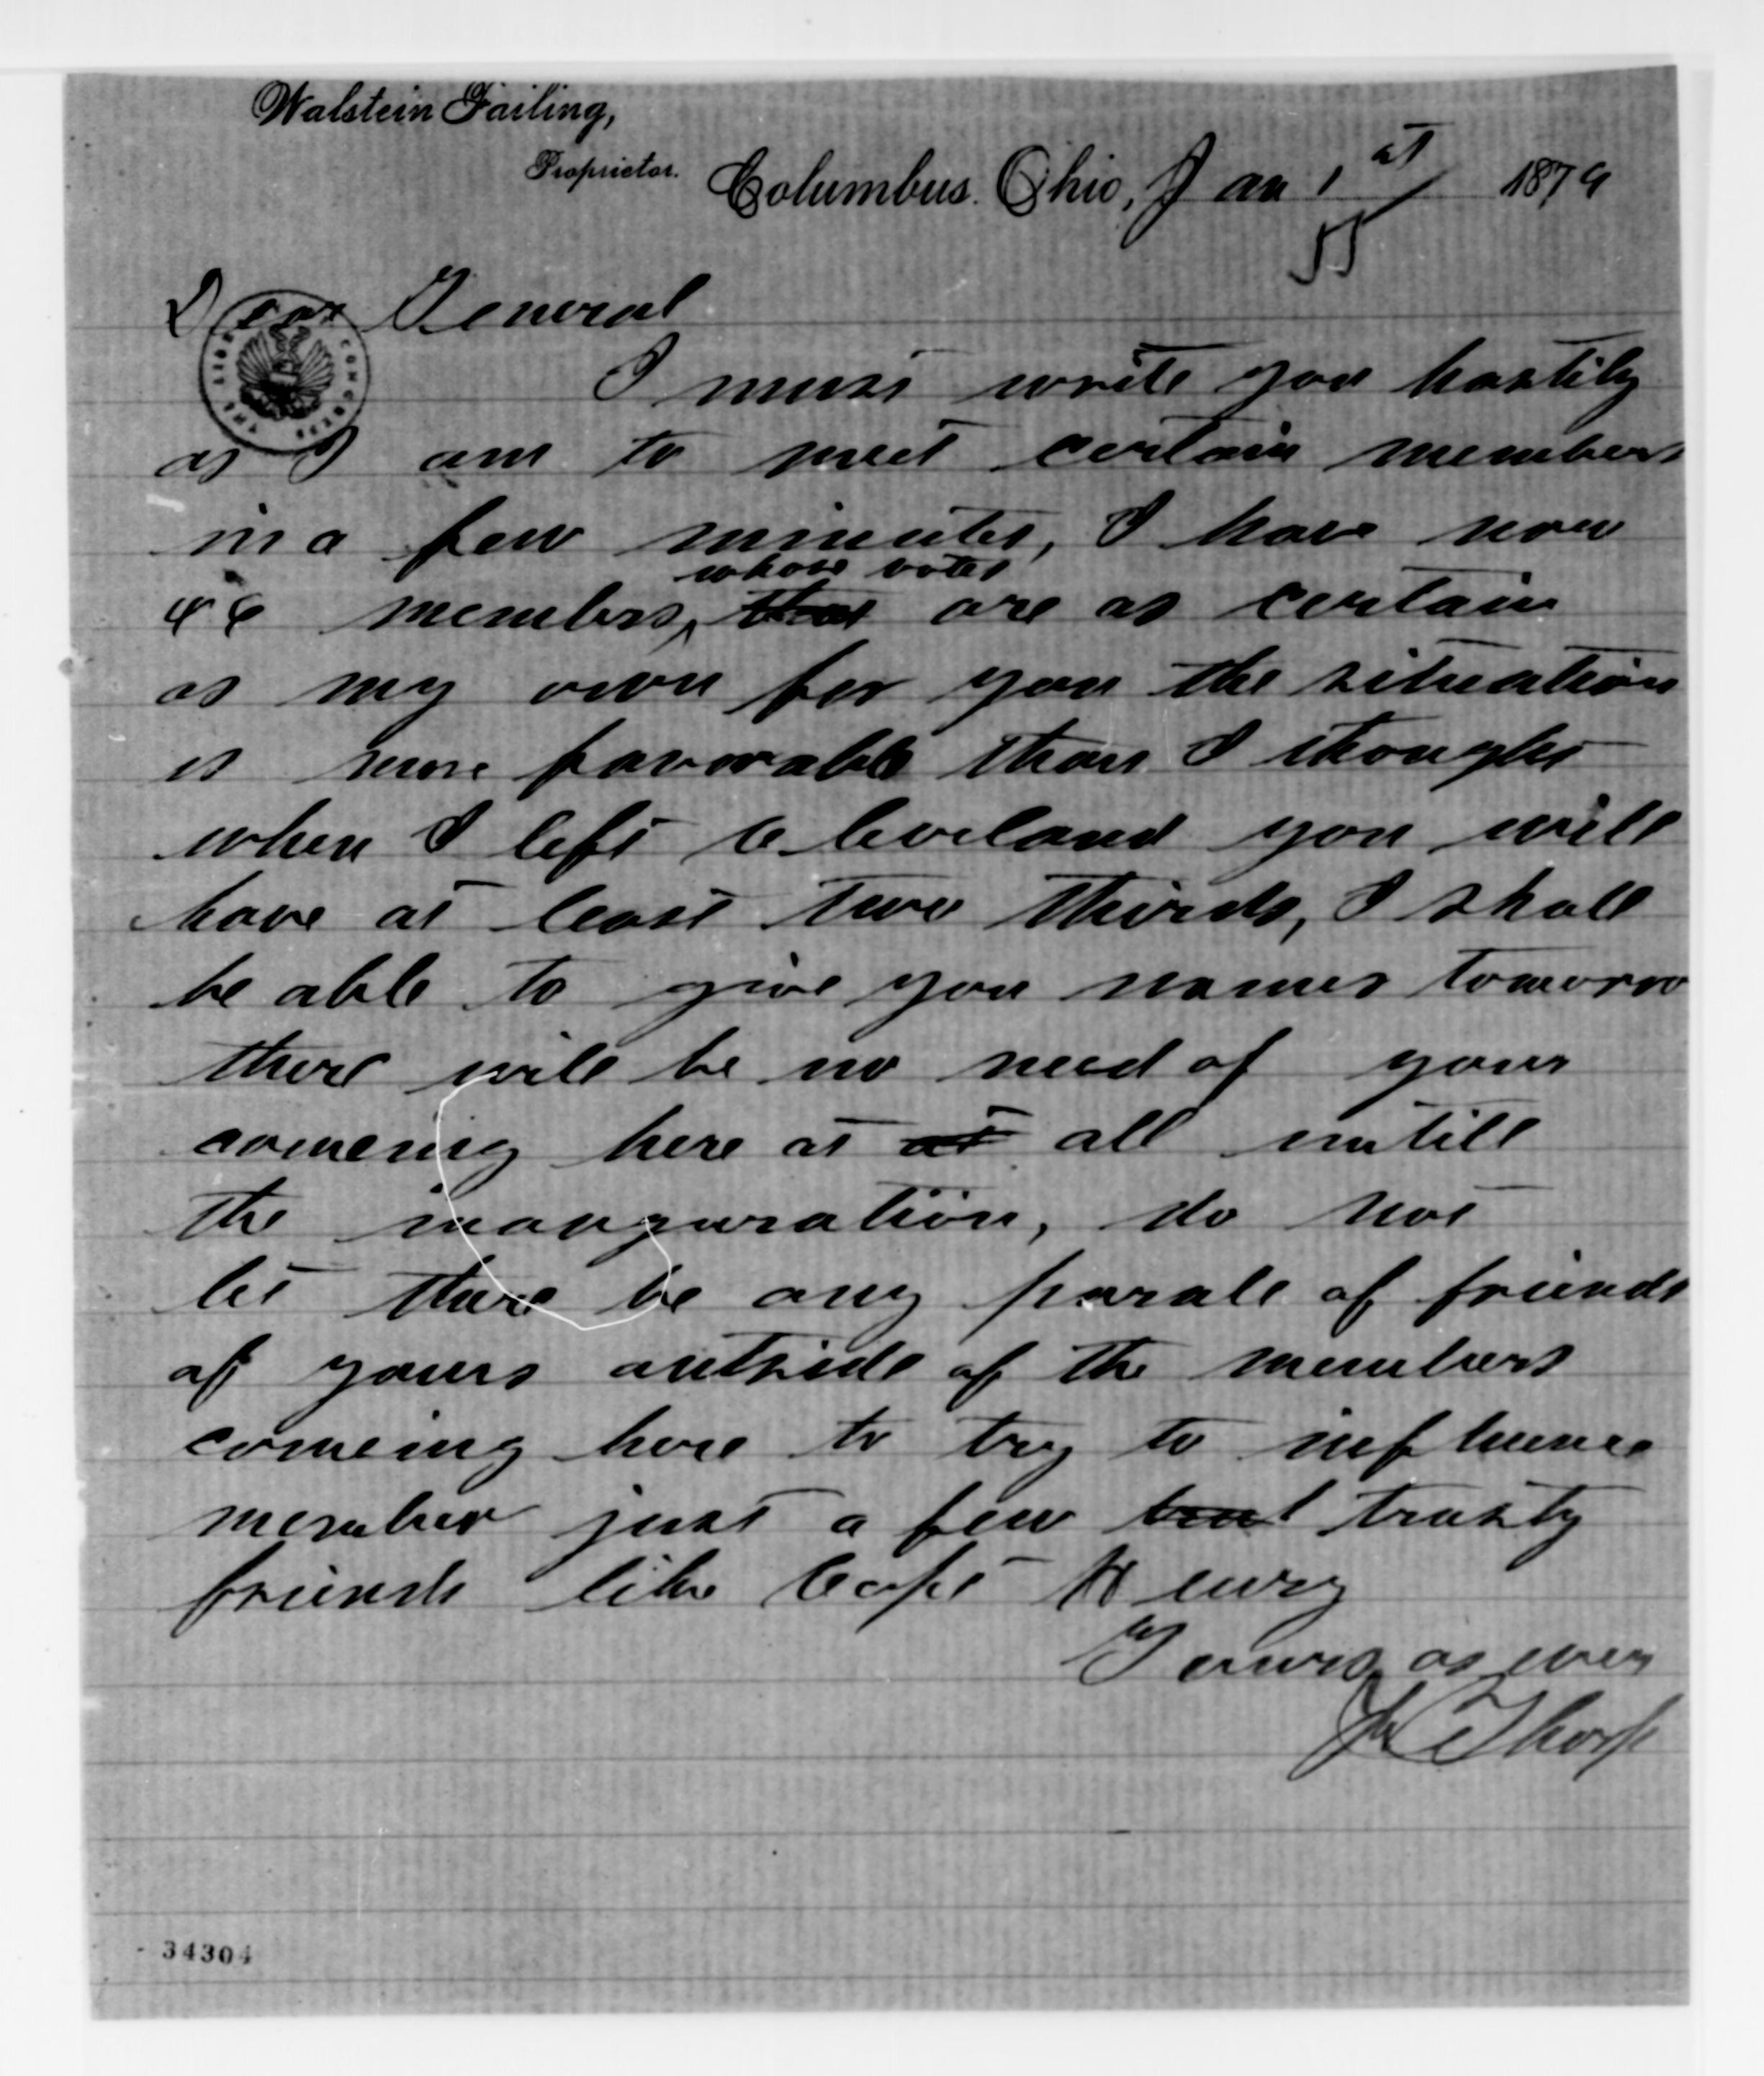 Walstein Failing,
Proprietor.
Columbus. Ohio, Jan 1st 1879
55
Dear General
I must write you hastily
as I am to meet certain members
in a few minutes, I have now
whose votes
46 members, that are as certain
as my own for you the situation
is more favorable than I thought
when I left Cleveland you will
have at least two thirds, I shall
be able to give you names tomorrow
there will be no need of your
comeing here at at all untill
the inauguration, do not
let there be any parale of friends
of yours outside of the members
comeing here to try to influence
member just a few trusty
friends like Capt Henry
Yours as ever
Thorp
THE LIBRARY CONGRESS
34304